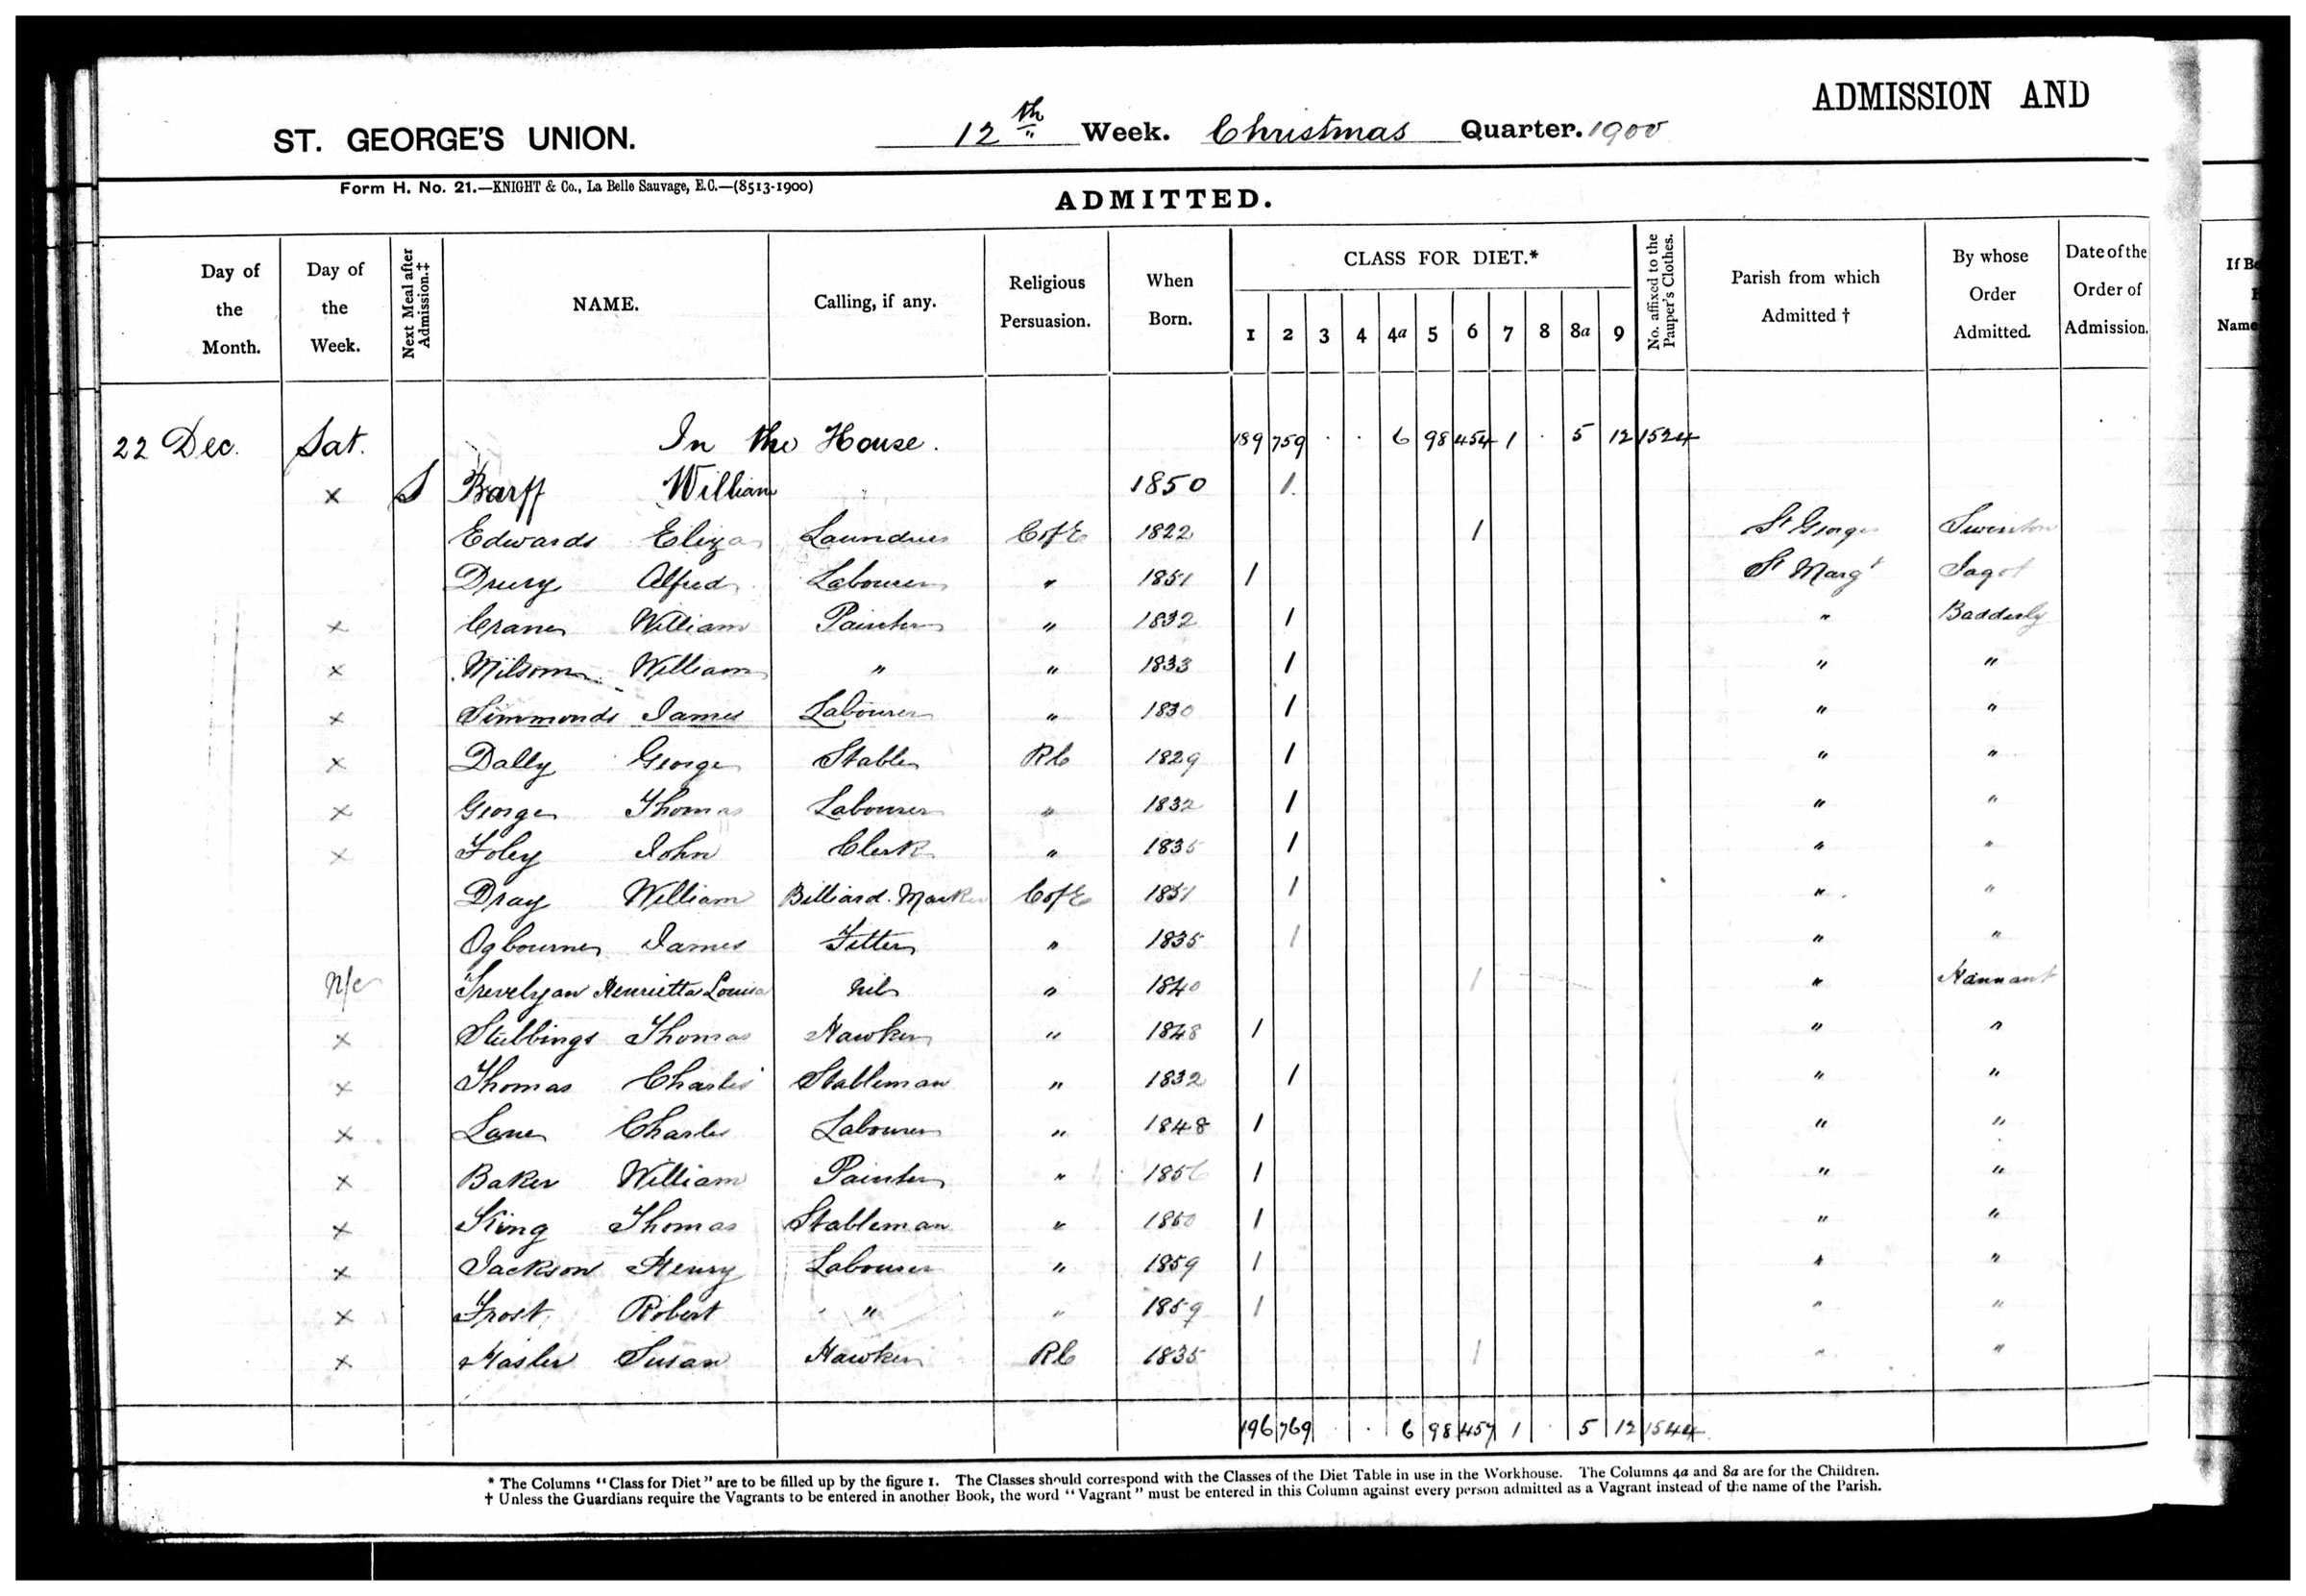 ADMISSION AND
ST. GEORGE'S UNION. 12th Week. Christmas Quarter. 1900
Form H. No. 21.—KNIGHT & Co., La Belle Sauvage, E.C.—(8513-1900)
ADMITTED.
Day of the Month. Day of the Week. Next Meal after Admission.‡ NAME. Calling, if any. Religious Persuasion. When Born. CLASS FOR DIET.* No. affixed to the Pauper's Clothes. Parish from which Admitted † By whose Order Admitted. Date of the Order of Admission. If Name
1 2 3 4 4a 5 6 7 8 8a 9
22 Dec. Sat. In the House. 189 759 . . 6 98 454 1 . 5 12 1524
x S Barff William 1850 1
Edwards Eliza Laundress C of E 1822 1 St Georges Swinton
Drury Alfred Labourer " 1851 1 St Margt Jagot
x Crane William Painter " 1832 1 " Badderly
x Milsom William " " 1833 1 " "
x Simmonds James Labourer " 1830 1 " "
x Dally George Stable RC 1829 1 " "
x George Thomas Labourer " 1832 1 " "
x Foley John Clerk " 1835 1 " "
Dray William Billiard Marker C of E 1851 1 " "
Ogbourne James Fitter " 1835 1 " "
N/c Trevelyan Henrietta Louisa Nil " 1840 1 " Hannant
x Stubbings Thomas Hawker " 1848 1 " "
x Thomas Charles Stableman " 1832 1 " "
x Lane Charles Labourer " 1848 1 " "
x Baker William Painter " 1856 1 " "
x King Thomas Stableman " 1850 1 " "
x Jackson Henry Labourer " 1859 1 " "
x Frost Robert " " 1859 1 " "
x Hasler Susan Hawker RC 1835 1 " "
196 769 . . 6 98 457 1 . 5 12 1544
* The Columns "Class for Diet" are to be filled up by the figure 1. The Classes should correspond with the Classes of the Diet Table in use in the Workhouse. The Columns 4a and 8a are for the Children.
† Unless the Guardians require the Vagrants to be entered in another Book, the word "Vagrant" must be entered in this Column against every person admitted as a Vagrant instead of the name of the Parish.